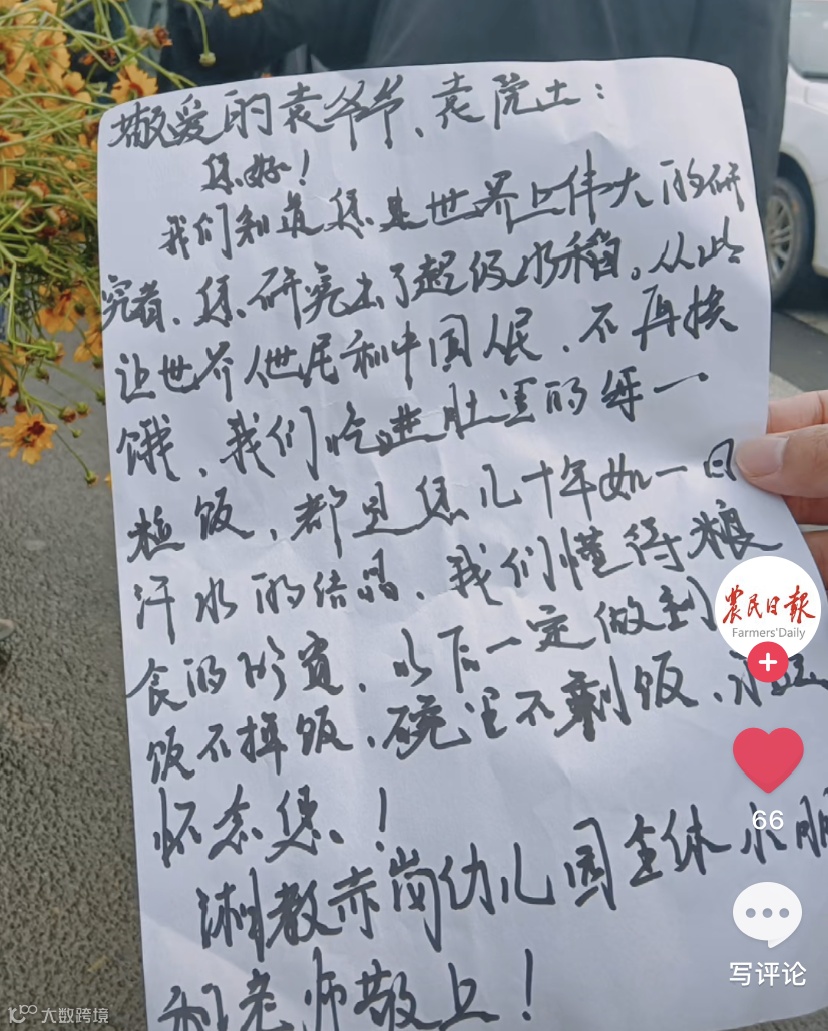 敬爱的袁爷爷、袁院士：
您好！
我们知道您是世界上伟大的研
究者、您研究出了超级水稻。从此
让世界人民和中国人民、不再挨
饿、我们吃进肚里的每一
粒饭、都是您几十年如一日
汗水的结晶、我们懂得粮
食的珍贵、以后一定做到
饭不掉饭、碗里不剩饭、永远
怀念您、！
湘教赤岗幼儿园全体小朋
和老师敬上！
農民日報
Farmers'Daily
66
写评论
大数跨境